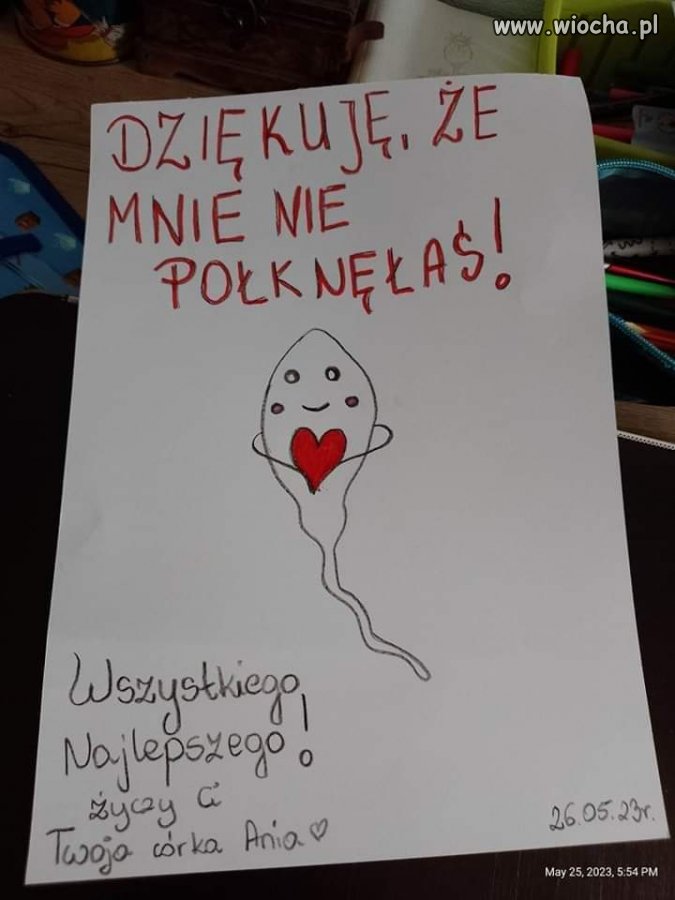 www.wiocha.pl
DZIĘKUJĘ, ŻE
MNIE NIE
POŁKNĘŁAŚ!
Wszystkiego
Najlepszego!
życzy Ci
Twoja córka Ania♡
26.05.23r.
May 25, 2023, 5:54 PM